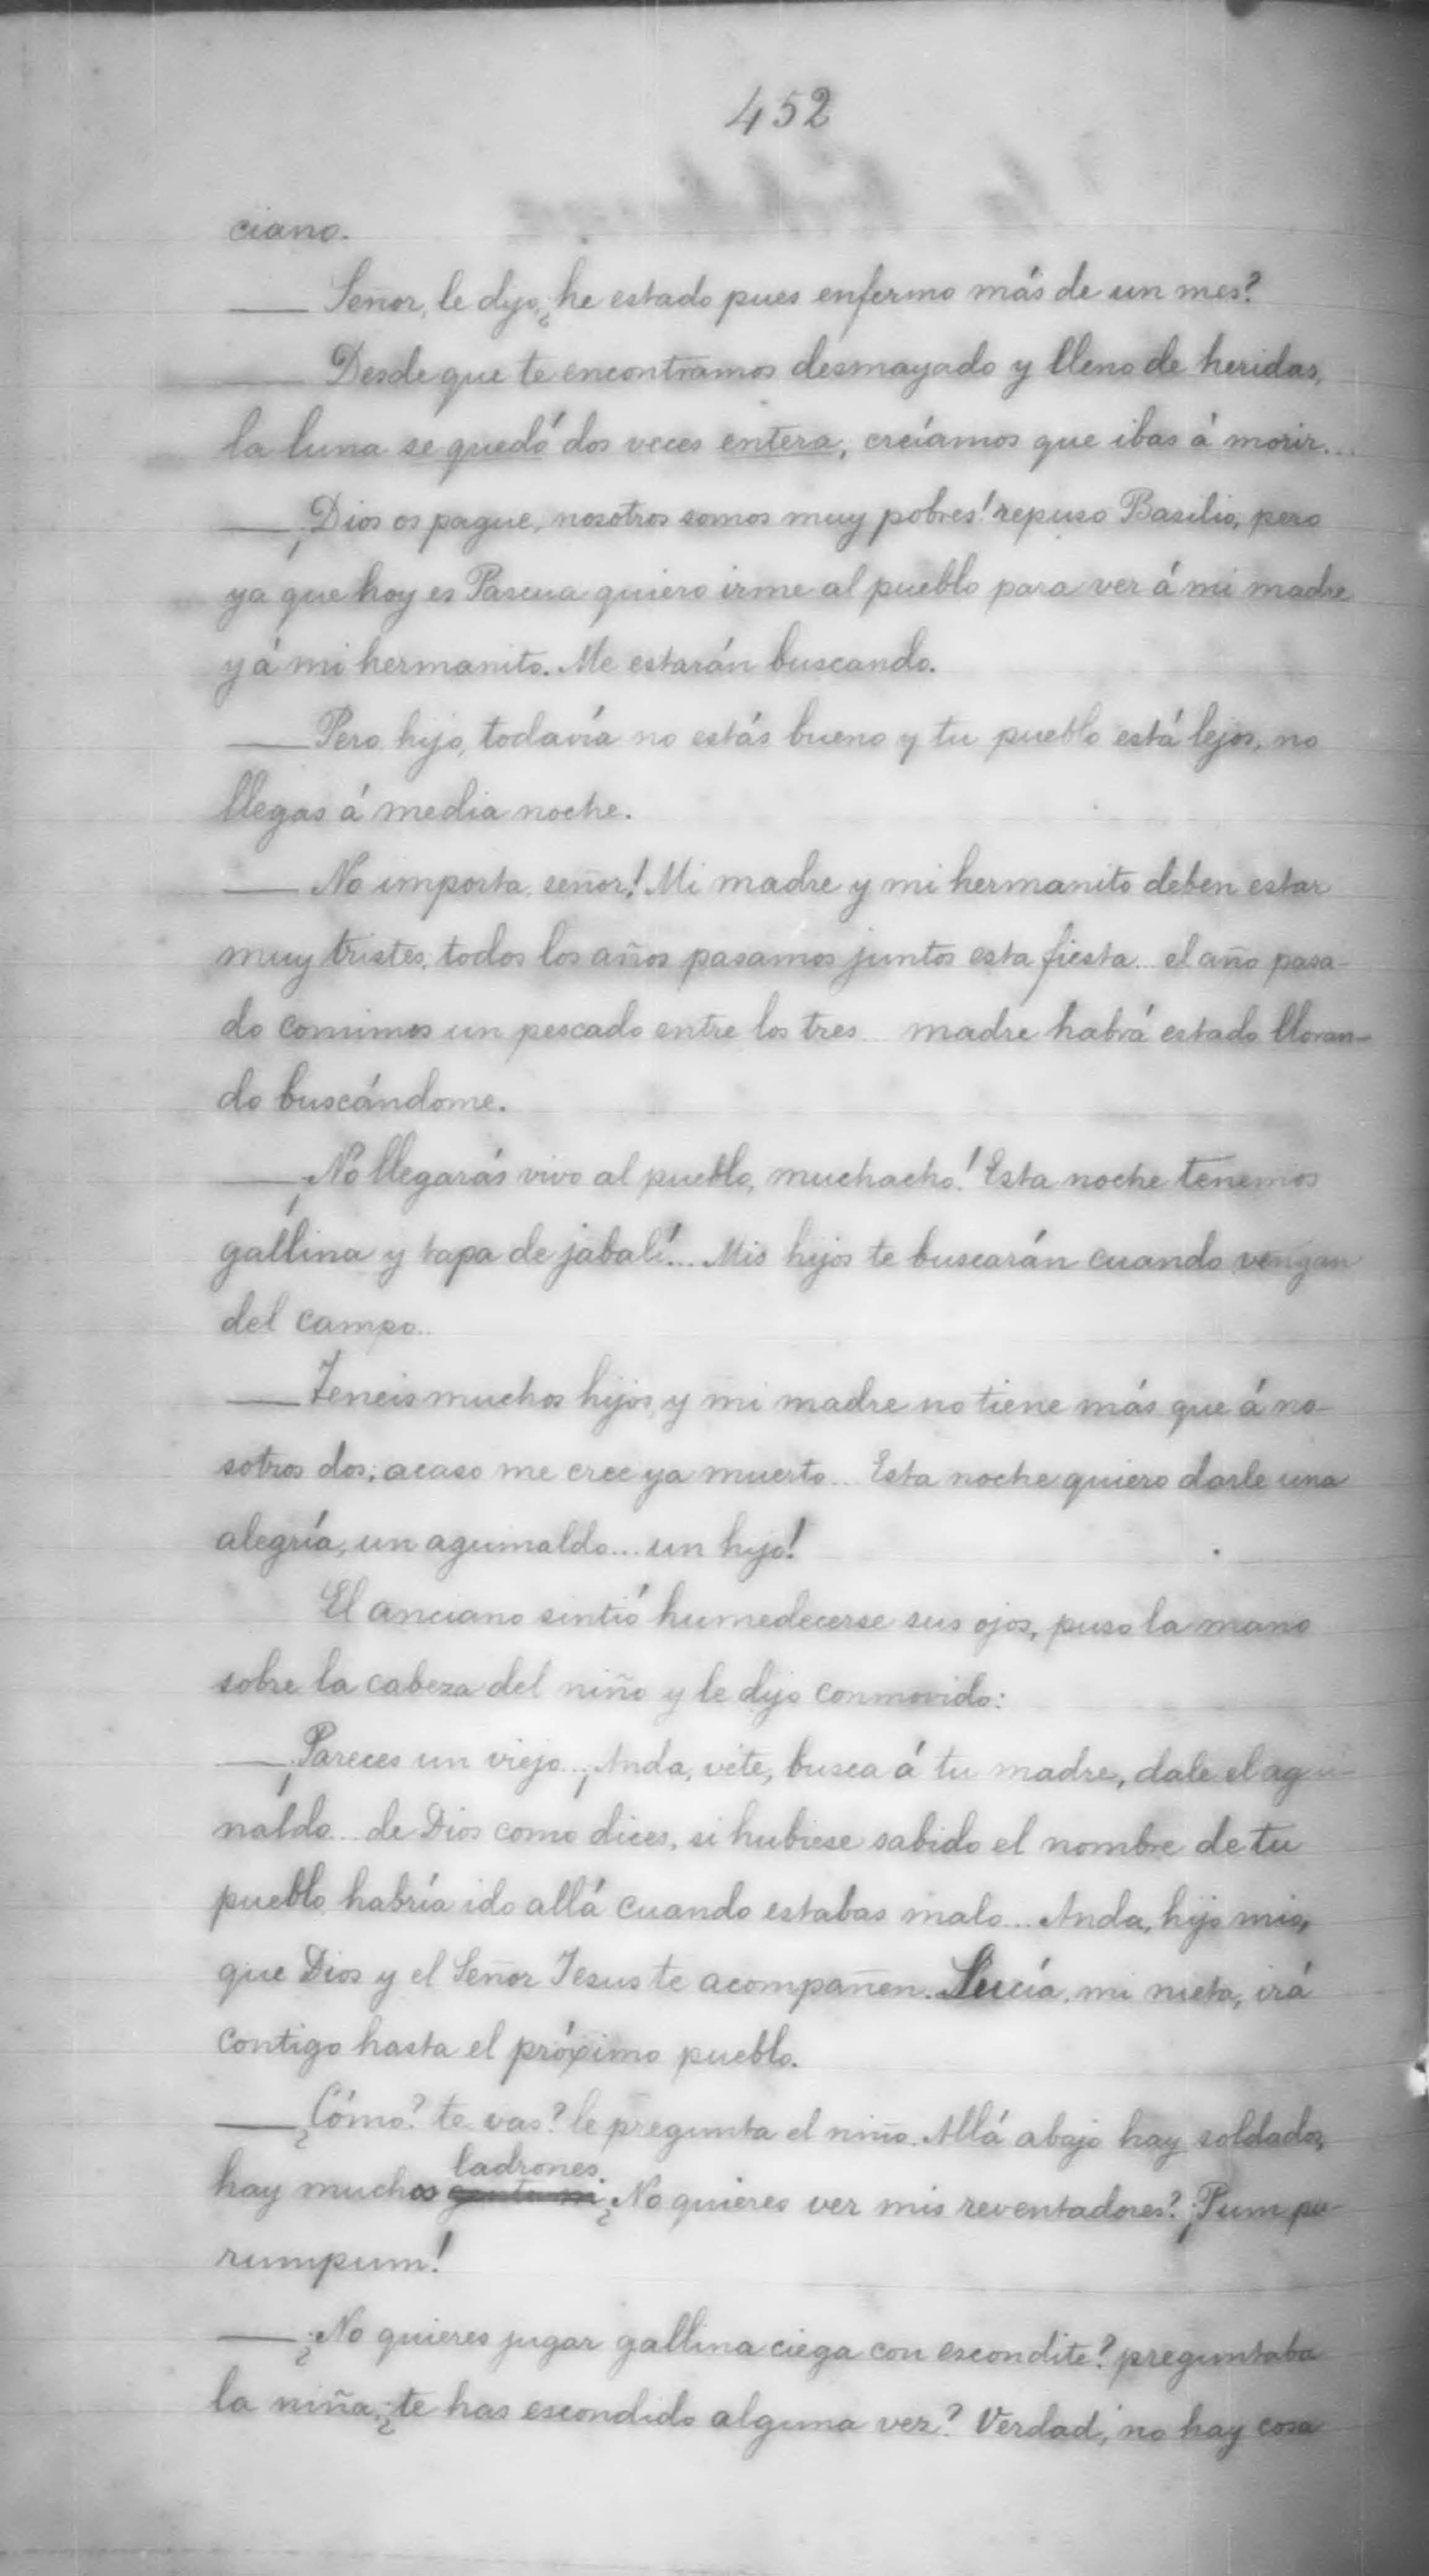 452
ciano.
— Señor, le dijo, ¿he estado pues enfermo más de un mes?
— Desde que te encontramos desmayado y lleno de heridas,
la luna se quedó dos veces entera, creíamos que ibas á morir...
— ¡Dios os pague, nosotros somos muy pobres! repuso Basilio, pero
ya que hoy es Pascua quiero irme al pueblo para ver á mi madre
y á mi hermanito. Me estarán buscando.
— Pero hijo, todavía no estás bueno y tu pueblo está lejos, no
llegas á media noche.
— No importa, señor! Mi madre y mi hermanito deben estar
muy tristes, todos los años pasamos juntos esta fiesta... el año pasa-
do comimos un pescado entre los tres... madre habrá estado lloran-
do buscándome.
— ¡No llegarás vivo al pueblo, muchacho! Esta noche tenemos
gallina y tapa de jabalí... Mis hijos te buscarán cuando vengan
del campo..
— Teneis muchos hijos, y mi madre no tiene más que á no-
sotros dos; acaso me cree ya muerto... Esta noche quiero darle una
alegría, un aguinaldo... un hijo!
El anciano sintió humedecerse sus ojos, puso la mano
sobre la cabeza del niño y le dijo conmovido:
— ¡Pareces un viejo... ¡Anda, vete, busca á tu madre, dale el agui-
naldo... de Dios como dices, si hubiese sabido el nombre de tu
pueblo, habría ido allá cuando estabas malo... Anda, hijo mio,
que Dios y el Señor Jesus te acompañen. Lucía, mi nieta, irá
contigo hasta el próximo pueblo.
— ¿Cómo? te vas? le pregunta el niño. Allá abajo hay soldados,
ladrones.
hay muchos ¿No quieres ver mis reventadores? ¡Pum pu-
rumpum!
— ¿No quieres jugar gallina ciega con escondite? preguntaba
la niña, ¿te has escondido alguna vez? Verdad, no hay cosa